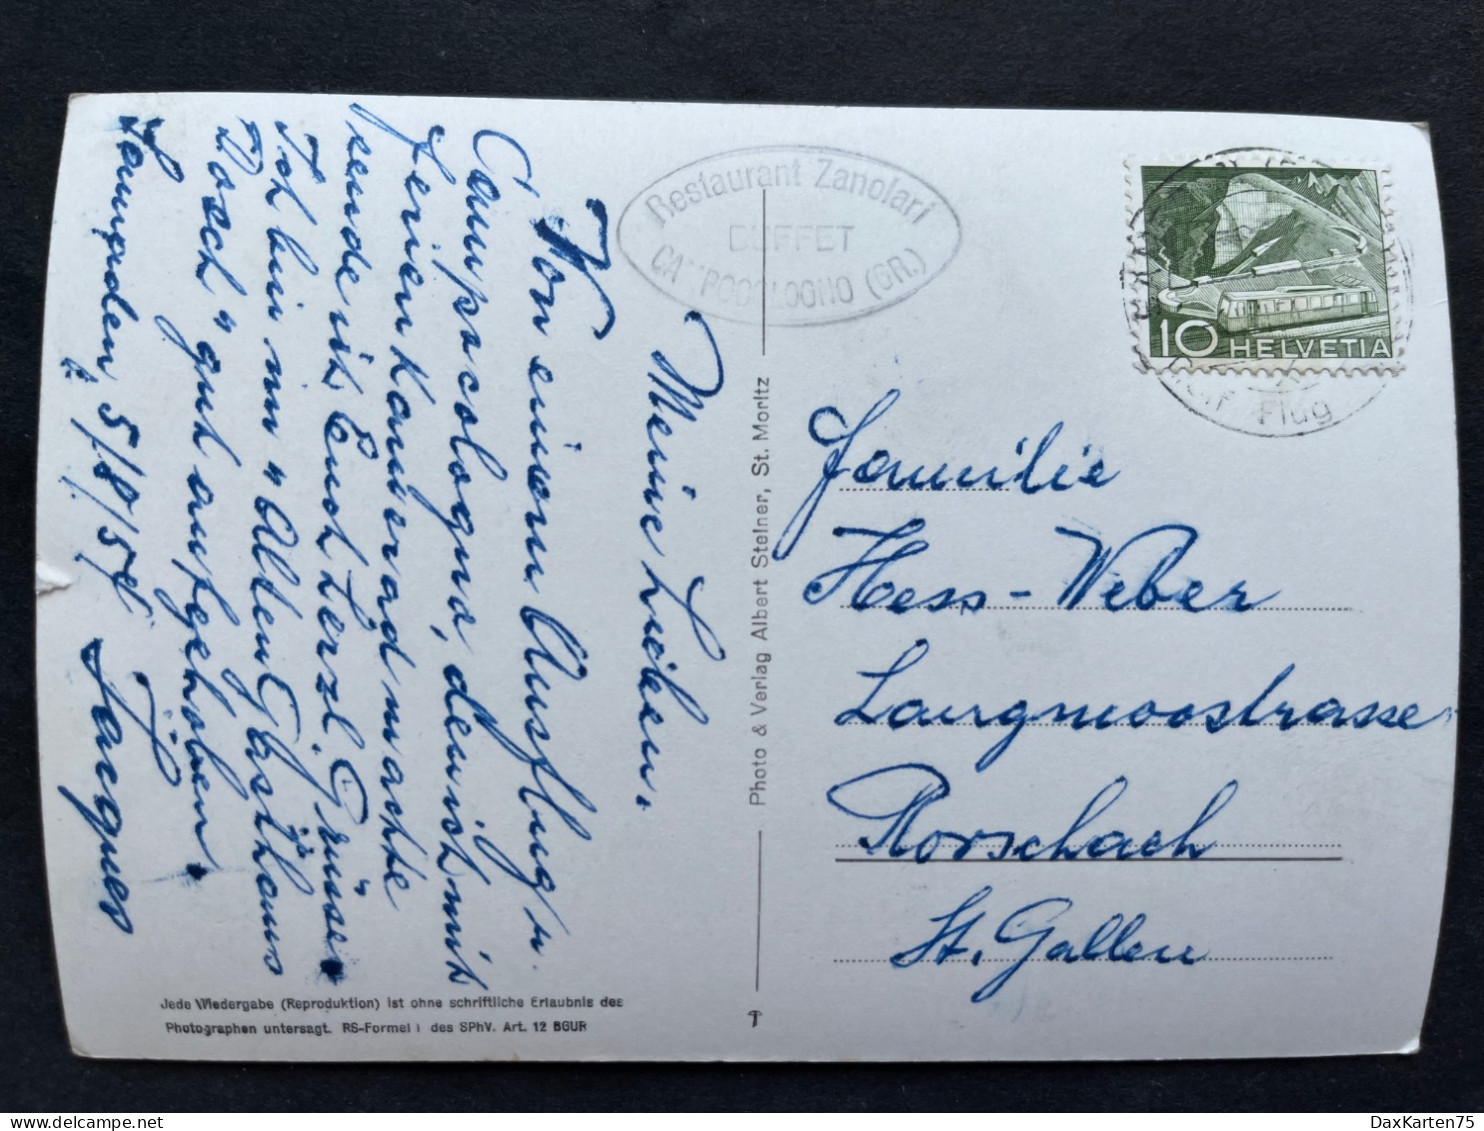 Meine Lieben.
Von einem Ausflug n.
Campocologno, den ich mit
Ferienkamerad machte
sende ich Euch herzl. Grüsse.
Ich bin im "Alten Gasthaus
Dosch" gut aufgehoben.
Samaden, 5/8/54
Jacques
Restaurant Zanolari
BUFFET
CAMPOCOLOGNO (GR.)
Photo & Verlag Albert Steiner, St. Moritz
10 HELVETIA
Flug
Familie
Hess-Weber
Langmoosstrasse
Rorschach
St. Gallen
Jede Wiedergabe (Reproduktion) ist ohne schriftliche Erlaubnis des
Photographen untersagt. RS-Formel I des SPhV. Art. 12 BGUR
DaxKarten75